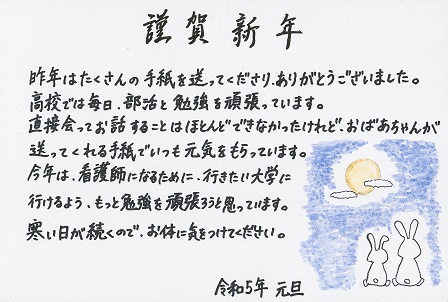 謹賀新年
昨年はたくさんの手紙を送ってくださり、ありがとうございました。
高校では毎日、部活と勉強を頑張っています。
直接会ってお話することはほとんどできなかったけれど、おばあちゃんが
送ってくれる手紙でいつも元気をもらっています。
今年は、看護師になるために、行きたい大学に
行けるよう、もっと勉強を頑張ろうと思っています。
寒い日が続くので、お体に気をつけてください。
令和5年 元旦